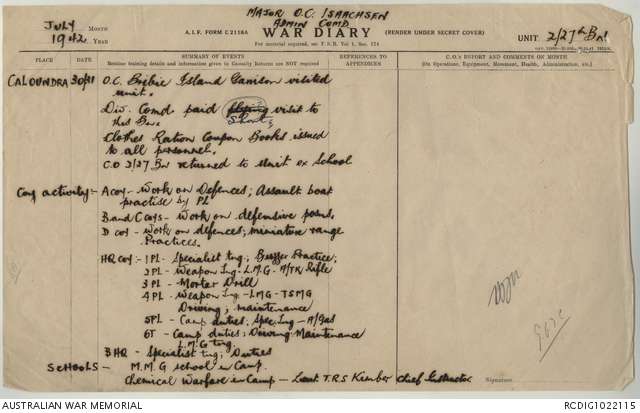 MAJOR O.C. ISAACHSEN
ADMIN COMD.
JULY MONTH
1942 YEAR
A.I.F. FORM C 2118A
WAR DIARY
(RENDER UNDER SECRET COVER)
UNIT 2/27th Bn
For material required, see F.S.R. Vol 1, Sec. 174
PLACE
DATE
SUMMARY OF EVENTS
Routine training details and information given in Casualty Returns are NOT required
REFERENCES TO APPENDICES
C.O's REPORT AND COMMENTS ON MONTH
(On Operations, Equipment, Movement, Health, Administration, etc.)
CALOUNDRA 30/31 O.C. Bribie Island Garrison visited
unit.
Div. Comd paid visit to
this Bn. short
Clothes Ration Coupon Books issued
to all personnel.
C.O 2/27 Bn returned to Unit ex School
Coy activity:- A coy - Work on Defences; Assault boat
practise by PL
B and C coys - work on defensive posns.
D coy - Work on defences; miniature range
Practices.
HQ coy: - 1PL - Specialist tng; Buzzer Practice;
2PL - Weapon tng - L.M.G - A/TK Rifle
3PL - Mortar Drill
4PL - Weapon tng - LMG - TSMG
Driving; maintenance
5PL - Camp duties; Spec. tng - A/gas
6T - Camp duties; Driving Maintenance
L.M.G tng
BHQ - Specialist tng; Duties
SCHOOLS - M.M.G school in Camp.
Chemical Warfare in Camp - Lieut T.R.S Kimber Chief Instructor
Signature
AUSTRALIAN WAR MEMORIAL
RCDIG1022115